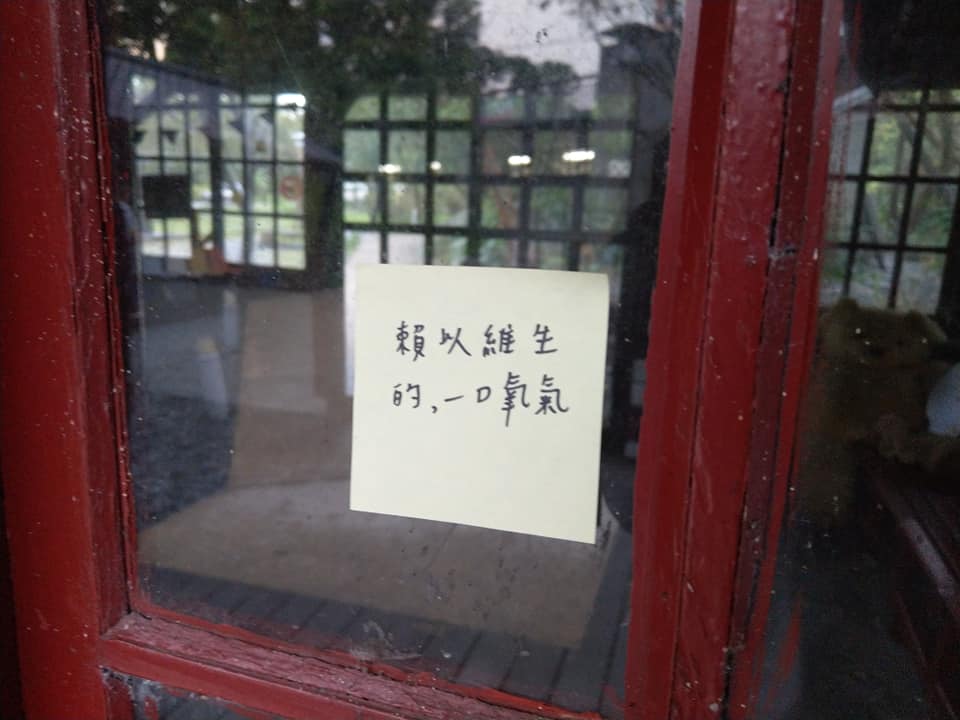 賴以維生
的,一口氧氣